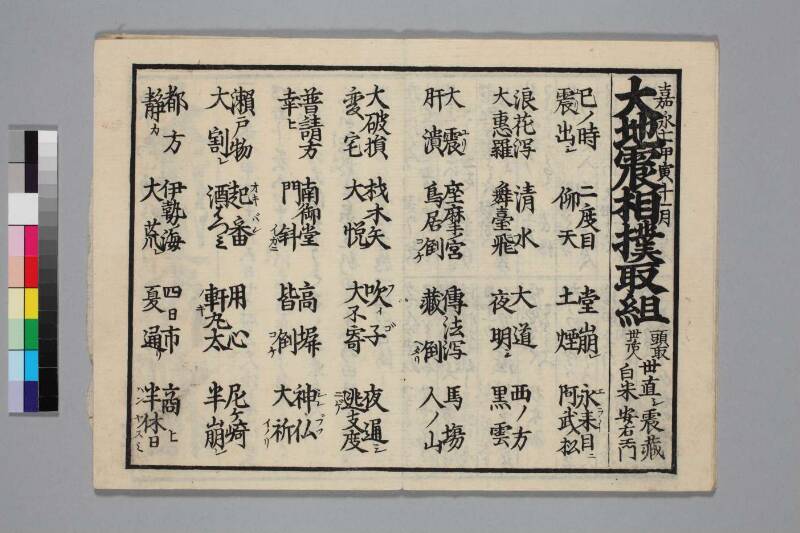 嘉永七甲寅十一月
大地震相撲取組
頭取 世直シ震藏
世話人 白米安右エ門
巳ノ時 二度目 堂崩シ 永来目ニ
震出シ 仰天 土煙 阿武松
浪花泻 清水 大道 西ノ方
大惠羅 舞臺飛 夜明シ 黒雲
大震リ 座摩宮 傳法泻 馬場
肝潰 鳥居倒 藏倒 人ノ山
大破損 材木矢 吹子 夜通シ
変宅 大悦 大不寄 迯支度
普請方 南御堂 高塀 神仏
幸ヒ 門斜 皆倒 大祈
瀬戸物 起番 用心 尼ヶ崎
大割レ 酒もつミ 軒丸太 半崩シ
都方 伊勢海 四日市 商ヒ
静カ 大荒 夏通リ 半休日